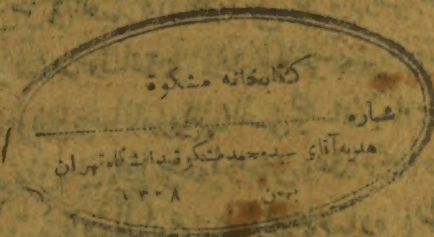 کتابخانه مشکوة
شماره
هدیه آقای سید محمد مشکوة بدانشگاه تهران
بهمن ۱۳۰۸